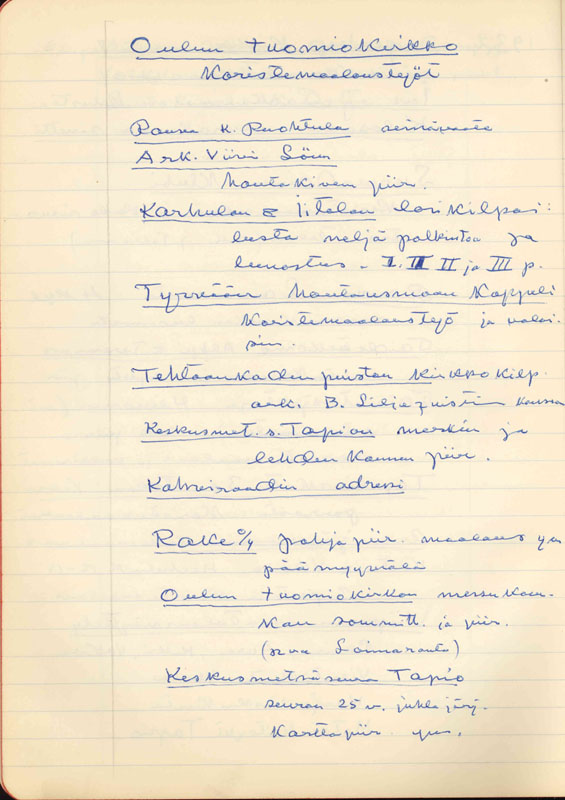 Oulun tuomiokirkko
Koristemaalaustyöt
Rouva K. Ruohtula seinävaate
Ark. Viivi Lönn
hautakiven piir.
Karhulan & Iitalan lasikilpai=
lusta neljä palkintoa ja
lunastus - I. II II ja III p.
Tyrvään Hautausmaan Kappeli
Koristemaalaustyö ja valai-
sin.
Tehtaankadun puiston kirkkokilp.
ark. B. Liljequistin kanssa
Keskusmet.s. Tapion merkin ja
lehden kannen piir.
adressi
Rake O/Y pohjapiir. maalaus ym
päämyymälä
Oulun tuomiokirkon messukas-
kan sommitt. ja piir.
(rva Loimaranta)
Keskusmetsäseura Tapio
seuran 25 v. juhla järj.
Karttapiir. ym.